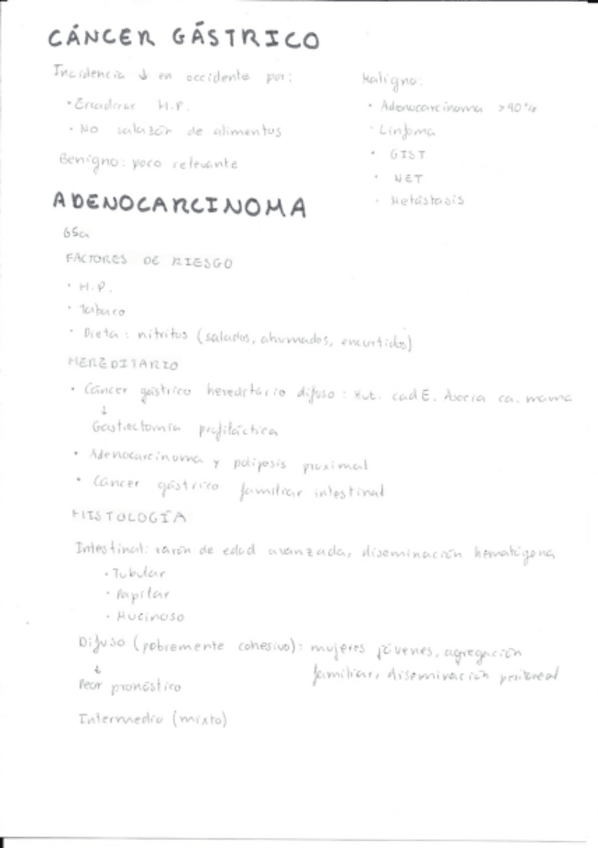 CÁNCER GÁSTRICO
Incidencia ↓ en occidente por:
• Erradicar H.P.
• No salazón de alimentos
Benigno: poco relevante
Maligno:
• Adenocarcinoma >90%
• Linfoma
• GIST
• NET
• Metástasis
ADENOCARCINOMA
65a
FACTORES DE RIESGO
• H.P.
• Tabaco
• Dieta: nitritos (salados, ahumados, encurtidos)
HEREDITARIO
• Cáncer gástrico hereditario difuso: Mut. cadE. Asocia ca. mama
↓
Gastrectomía profiláctica
• Adenocarcinoma y poliposis proximal
• Cáncer gástrico familiar intestinal
HISTOLOGÍA
Intestinal: varón de edad avanzada, diseminación hematógena
• Tubular
• Papilar
• Mucinoso
Difuso (pobremente cohesivo): mujeres jóvenes, agregación
familiar, diseminación peritoneal
↓
Peor pronóstico
Intermedio (mixto)